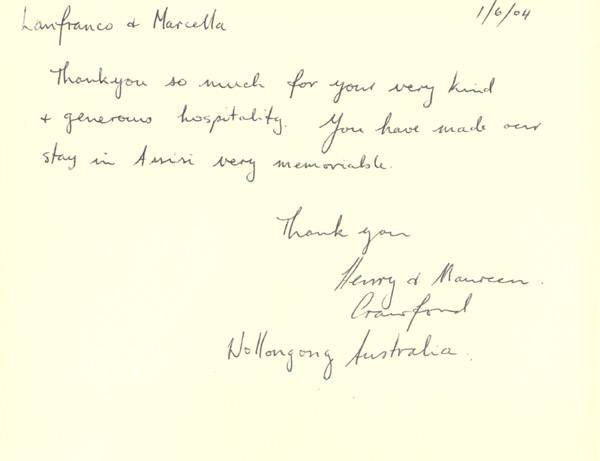 Lanfranco & Marcella 1/6/04
Thankyou so much for your very kind
& generous hospitality. You have made our
stay in Assisi very memoriable.
Thank you
Henry & Maureen.
Crawford
Wollongong Australia.